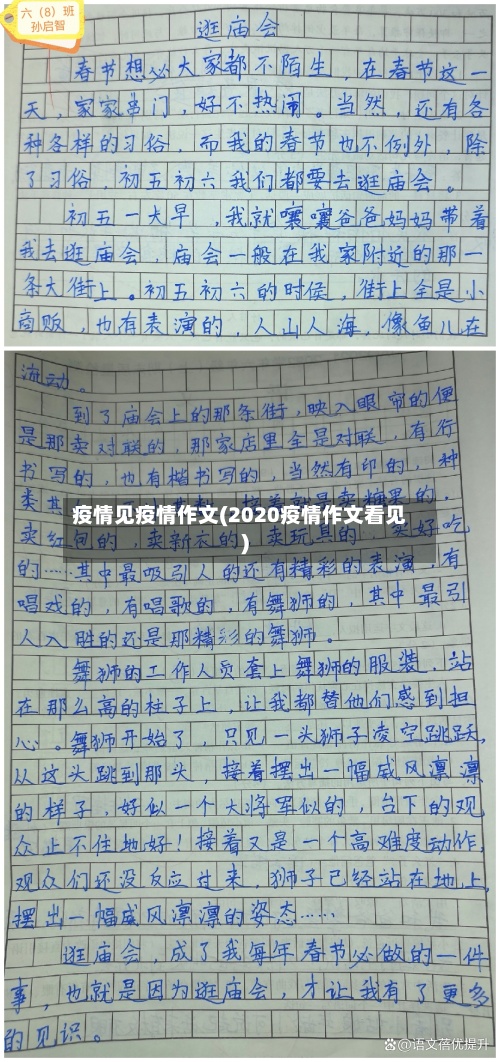 六（8）班
孙启智
逛庙会
春节想必大家都不陌生，在春节这一
天，家家串门，好不热闹。当然，还有各
种各样的习俗，而我的春节也不例外，除
了习俗，初五初六我们都要去逛庙会。
初五一大早，我就嚷嚷爸爸妈妈带着
我去逛庙会，庙会一般在我家附近的那一
条大街上。初五初六的时侯，街上全是小
商贩，也有表演的，人山人海，像鱼儿在
流动。
到了庙会上的那条街，映入眼帘的便
是那卖对联的，那家店里全是对联，有行
书写的，也有楷书写的，当然有印的，种
类其
接着就是卖糖果的，
疫情见疫情作文(2020疫情作文看见
)
卖红包的，卖新衣的，卖玩具的，卖好吃
的……其中最吸引人的还有精彩的表演，有
唱戏的，有唱歌的，有舞狮的，其中最引
人入胜的还是那精彩的舞狮。
舞狮的工作人员套上舞狮的服装，站
在那么高的柱子上，让我都替他们感到担
心。舞狮开始了，只见一头狮子凌空跳跃，
从这头跳到那头，接着摆出一幅威风凛凛
的样子，好似一个大将军似的，台下的观
众止不住地好！接着又是一个高难度动作，
观众们还没反应过来，狮子已经站在地上，
摆出一幅威风凛凛的姿态……
逛庙会，成了我每年春节必做的一件
事，也就是因为逛庙会，才让我有了更多
的见识。
知乎 @语文蓓优提升